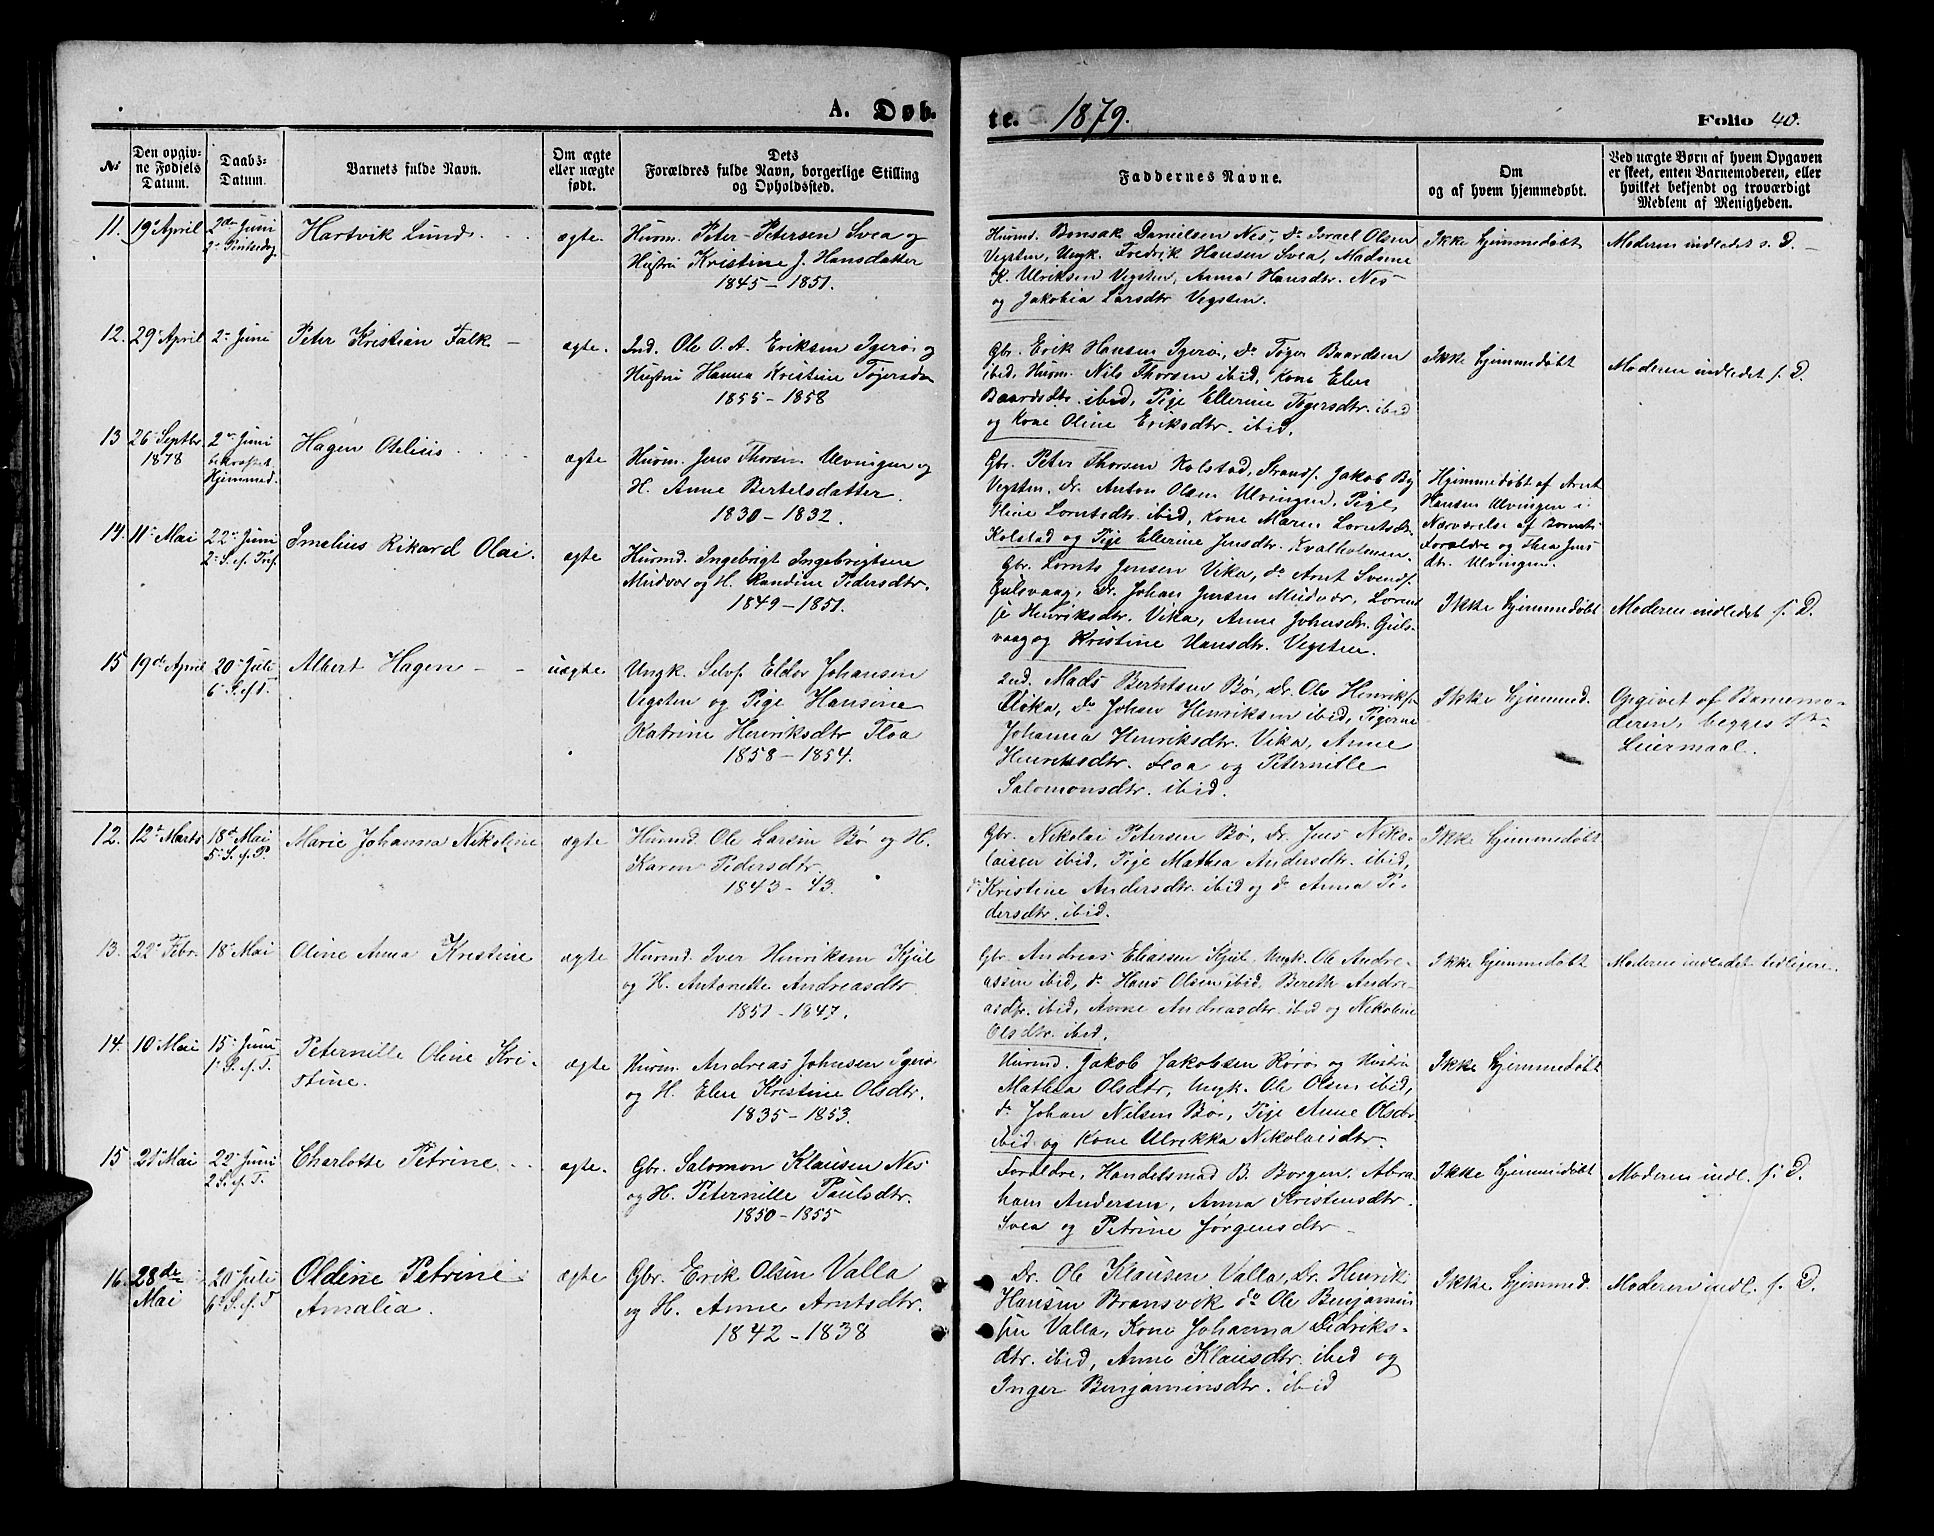 A. Døb-
te. 1879.
Folio 40.
No
Den opgiv-
ne Fødsels
Datum.
Daabs-
Datum.
Barnets fulde Navn.
Om ægte
eller uægte
født.
Dets
Forældres fulde Navn, borgerlige Stilling
og Opholdssted.
Faddernes Navne.
Om
og af hvem hjemmedøbt.
Ved uægte Børn af hvem Opgaven
er skeet, enten Barnemoderen, eller
hvilket bekjendt og troværdigt
Medlem af Menigheden.
11. 19de April
2den Juni
2den Pintsedag
Hartvik Lund
ægte.
Huusm. Peter Petersen Svea og
Hustru Kristine J. Hansdatter
1845 - 1851.
Huusmd. Bonsak Danielsen Nes, do Israel Olsen
Vegsten, Ungk. Fredrik Hansen Svea, Madame
K. Ulriksen Vegsten, Anna Hansdtr. Nes
og Jakobia Larsdtr Vegsten.
Ikke hjemmedøbt
Moderen indledet s. D.
12. 29de April
2den Juni
Peter Kristian Falk
ægte.
Ind. Ole O. A. Eriksen Igerø og
Hustru Hanna Kristine Tøgersdtr
1855 - 1858
Gbr. Erik Hansen Igerø, do Tøger Baardsen
ibid, Huusm. Nils Thorsen ibid, Kone Elen
Baardsdtr. ibid, Pige Ellerine Tøgersdtr. ibid
og Kone Oline Eriksdtr. ibid.
Ikke hjemmedøbt
Moderen indledet s. D.
13 26de Septbr
1878
2den Juni
bekræftet
Hjemmed.
Hagen Otelius
ægte
Huusm. Jens Thorsen Ulvingen og
H. Anne Bertelsdatter.
1830 - 1832.
Gbr. Peter Thorsen Kolstad, Strands. Jakob By
Vegsten, do. Anton Olsen Ulvingen, Pige
Lorntsdtr. ibid, Kone Maren Lorntsdtr.
Kolstad og Pige Ellerine Jensdtr. Kvalholmen.
Hjemmedøbt af Arnt
Hansen Ulvingen i
Nærværelse af Barnets
Forældre og Thea Jens-
dtr. Ulvingen.
14. 11te Mai
22de Juni
2. S. ef. Tref.
Imelius Rikard Olai.
ægte
Huusmd. Ingebrigt Ingebrigtsen
Mudvær og H. Randine Pedersdtr.
1849 - 1851.
Gbr. Lornts Jensen Vika, do Arnt Svends.
Gulsvaag, Dr. Johan Jensen Mudvær, Loren-
se Henriksdtr. Vika, Anne Johnsdtr. Guls-
vaag og Kristine Hansdtr. Vegsten.
Ikke hjemmedøbt
Moderen indledet s. D.
15 19de April
20de Juli
6te S. ef T.
Albert Hagen
uægte
Ungk. Selvf. Eldor Johansen
Vegsten og Pige Hansine
Katrine Henriksdtr Floa
1858 - 1854.
Ind. Mads Berntsen Bø, Dr. Ole Henriks.
Vika, do Johan Henriksen ibid, Pigerne
Johanna Henriksdtr. Vika, Anne
Henriksdtr. Floa og Peternille
Salomonsdtr. ibid.
Ikke hjemmed.
Opgivet af Barnemo-
deren, begges 1ste
Leiermaal.
12. 12te Marts
18de Mai
5te S. ef. P.
Marie Johanna Nikoline
ægte
Huusmd. Ole Larsen Bø og H.
Karen Pedersdtr.
1843 - 43.
Gbr. Nikolai Petersen Bø, Dr. Jens Niko-
laisen ibid, Pige Mathea Andersdtr. ibid,
do Kristine Andersdtr. ibid og do Anna Pe-
dersdtr. ibid.
Ikke hjemmedøbt
13. 22de Febr.
18de Mai
Oline Anna Kristine
ægte
Huusmd. Iver Henriksen Kjul
og H. Antonette Andreasdtr.
1851 - 1847.
Gbr. Andreas Eliassen Kjul, Ungk. Ole Andre-
assen ibid, do Hans Olsen ibid, Bereth Andre-
asdtr. ibid, Anne Andreasdtr. ibid og Nikoline
Olsdtr. ibid.
Ikke hjemmedøbt
Moderen indledet tidligere.
14. 10de Mai
15de Juni
1ste S. ef. T.
Peternille Oline Kri-
stine.
ægte
Huusm. Andreas Johnsen Igerø
og H. Elen Kristine Olsdtr.
1835 - 1853.
Huusmd. Jakob Jakobsen Rørø og Hustru
Mathea Olsdtr, Ungk. Ole Olsen ibid,
do Johan Nilsen Bø, Pige Anne Olsdtr
ibid og Kone Ulrikka Nikolaisdtr.
Ikke hjemmedøbt
15 21de Mai
22de Juni
2 S. ef. T.
Charlotte Petrine
ægte.
Gbr. Salomon Klausen Nes
og H. Peternille Paulsdtr.
1850 - 1855
Forældre, Handelsmad B. Borgen, Abra-
ham Andersen, Anna Kristensdtr.
Svea og Petrine Jørgensdtr
Ikke hjemmedøbt
Moderen indl. s. D.
16. 28de
Mai
20de Juli
6te S. ef. T
Oldine Petrine
Amalia.
ægte
Gbr. Erik Olsen Valla
og H. Anne Arntsdtr.
1842 - 1838
Dr. Ole Klausen Valla, Dr. Henrik
Hansen Bransvik do Ole Benjamin-
sen Valla, Kone Johanna Didriks-
dtr. ibid, Anne Klausdtr. ibid og
Inger Benjaminsdtr. ibid
Ikke hjemmed.
Moderen indl. s. D.